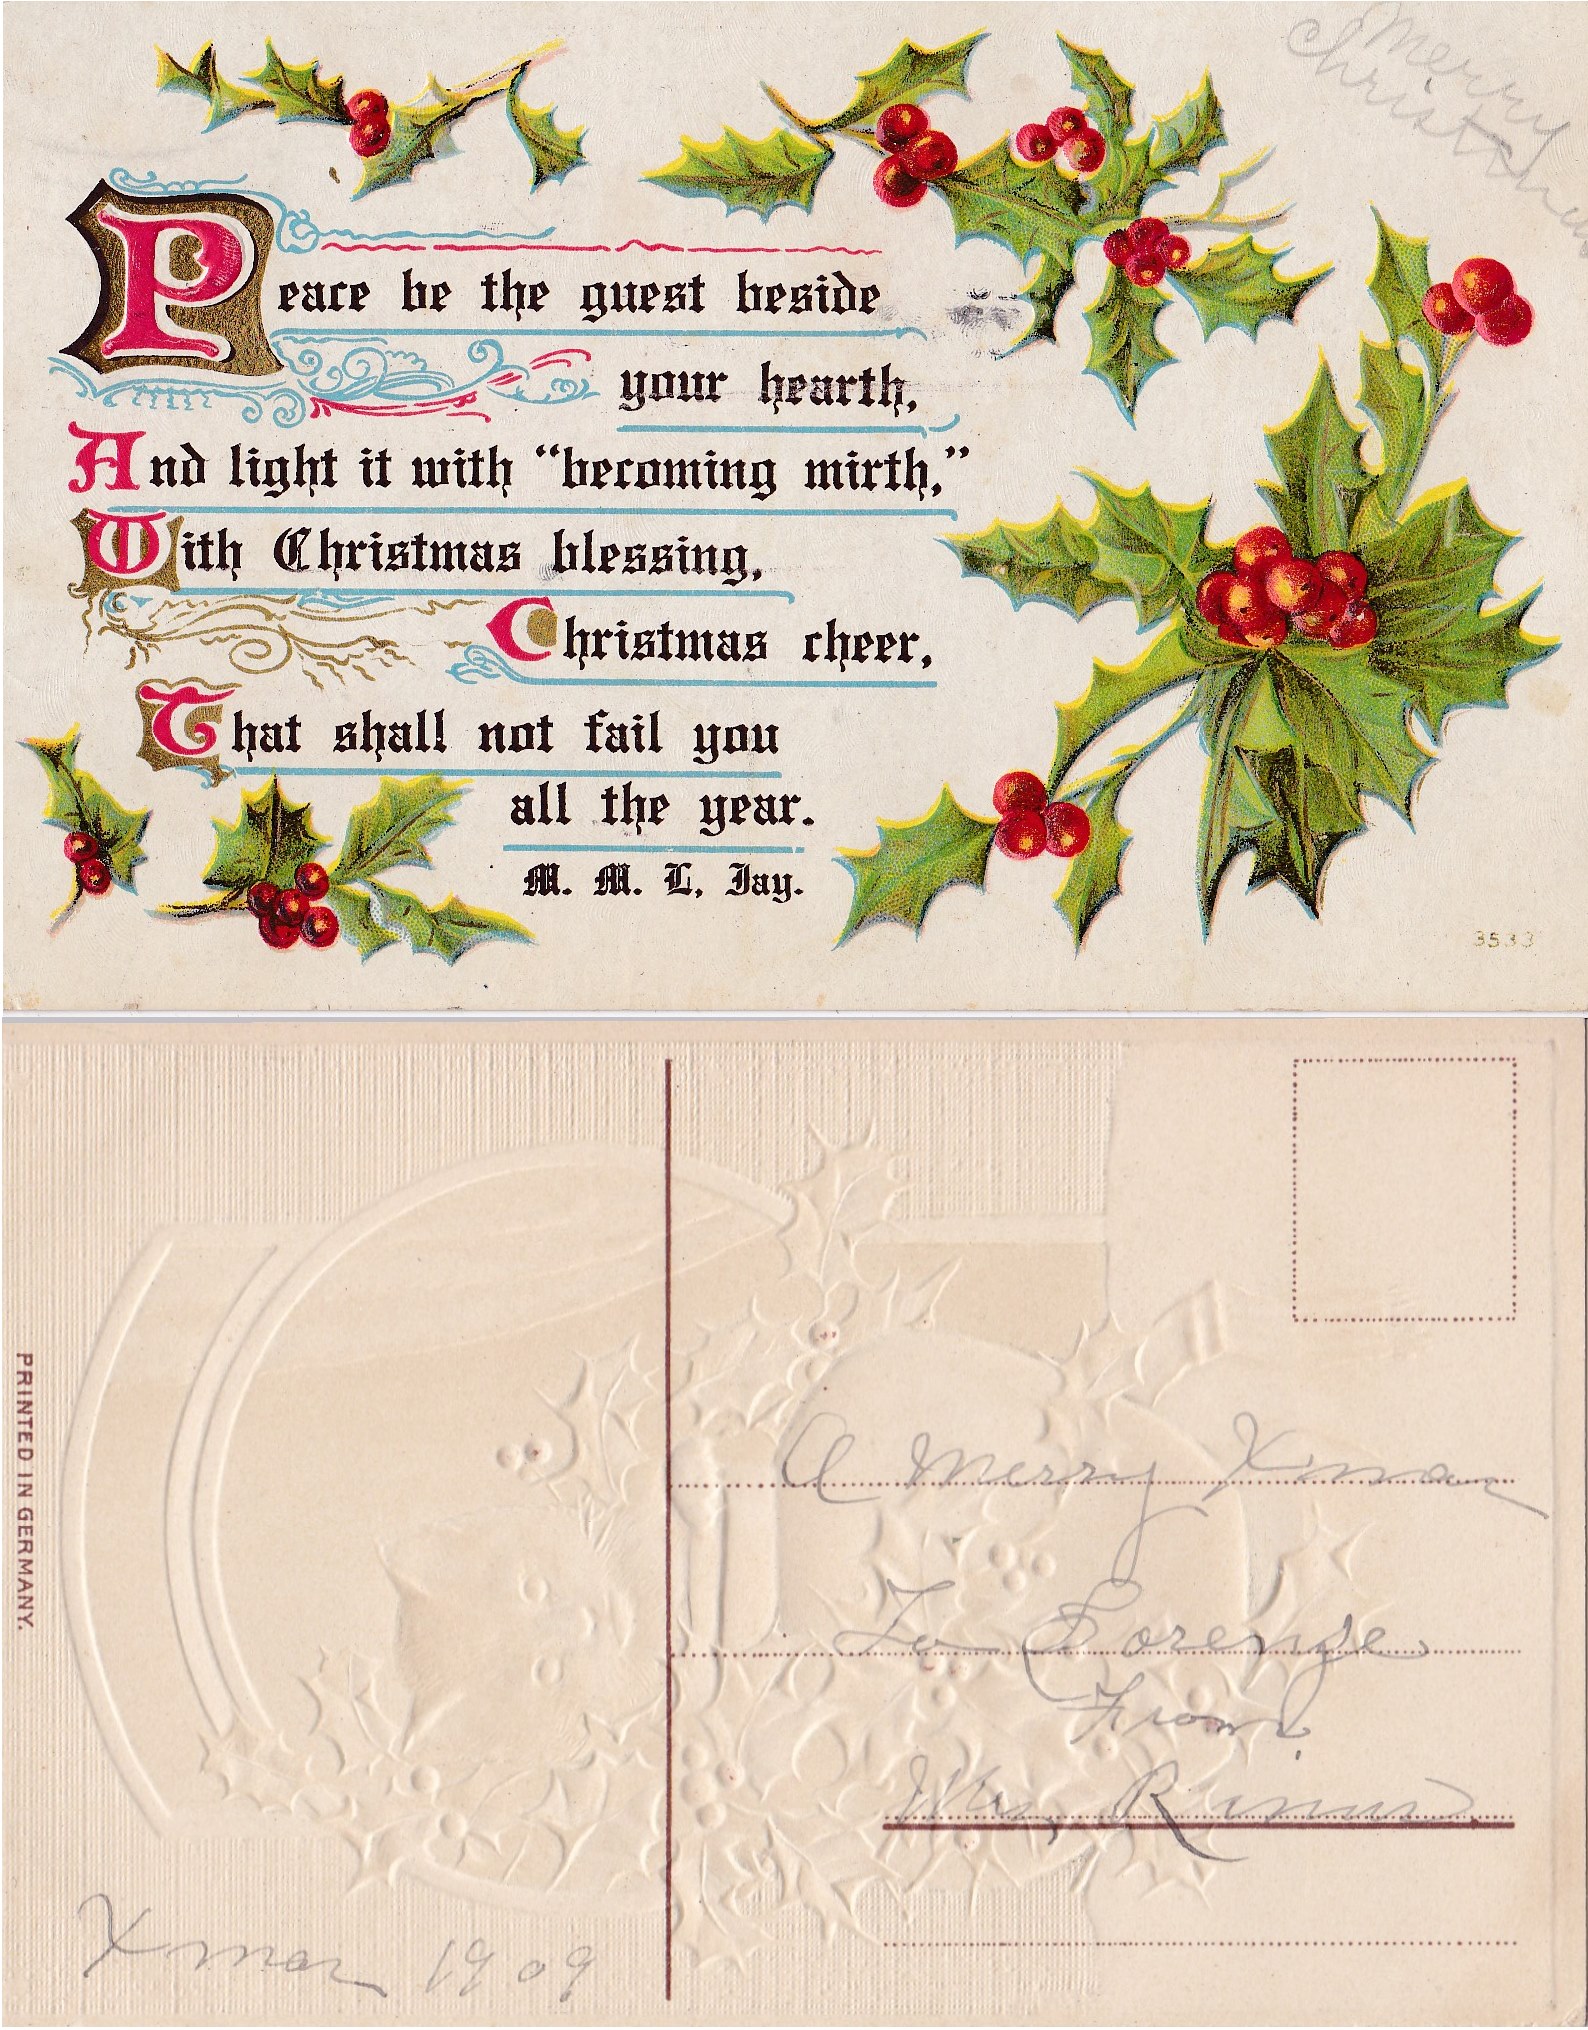 Merry
Christmas
Peace be the guest beside
your hearth,
And light it with “becoming mirth,”
With Christmas blessing,
Christmas cheer,
That shall not fail you
all the year.
M. M. L. Jay.
3533
PRINTED IN GERMANY.
A Merry Xmas
To Lorenze
From
Mrs,
Xmas 1909